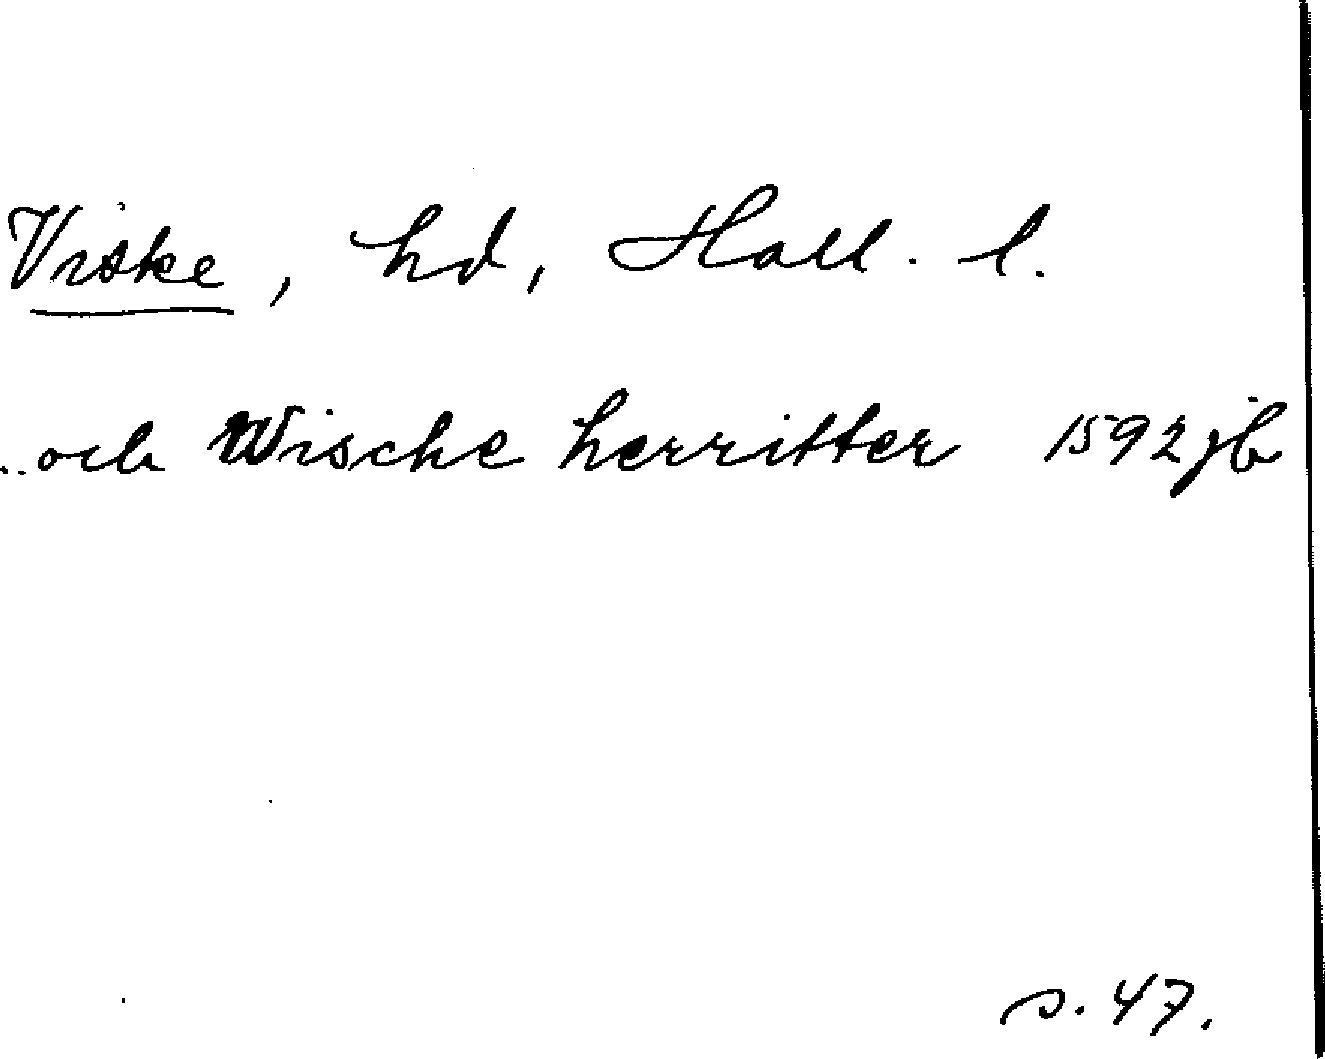 Viske, hd, Hall. l.
..och Wische herritter 1592 jb
s. 47.